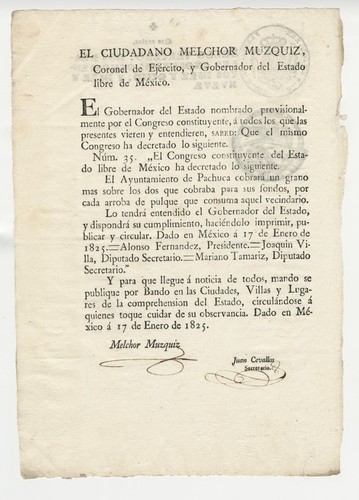 EL CIUDADANO MELCHOR MUZQUIZ,
Coronel de Ejército, y Gobernador del Estado
libre de México.
El Gobernador del Estado nombrado provisionalmente
por el Congreso constituyente, á todos los que las
presentes vieren y entendieren, SABED: Que el mismo
Congreso ha decretado lo siguiente.
Núm. 35. „El Congreso constituyente del Estado
libre de México ha decretado lo siguiente.
El Ayuntamiento de Pachuca cobrará un grano
mas sobre los dos que cobraba para sus fondos, por
cada arroba de pulque que consuma aquel vecindario.
Lo tendrá entendido el Gobernador del Estado,
y dispondrá su cumplimiento, haciéndolo imprimir, publicar
y circular. Dado en México á 17 de Enero de
1825.=Alonso Fernandez, Presidente.=Joaquin Villa,
Diputado Secretario.=Mariano Tamariz, Diputado
Secretario."
Y para que llegue á noticia de todos, mando se
publique por Bando en las Ciudades, Villas y Lugares
de la comprehension del Estado, circulándose á
quienes toque cuidar de su observancia. Dado en México
á 17 de Enero de 1825.
Melchor Muzquiz
Juan Cevallos
Secretario.